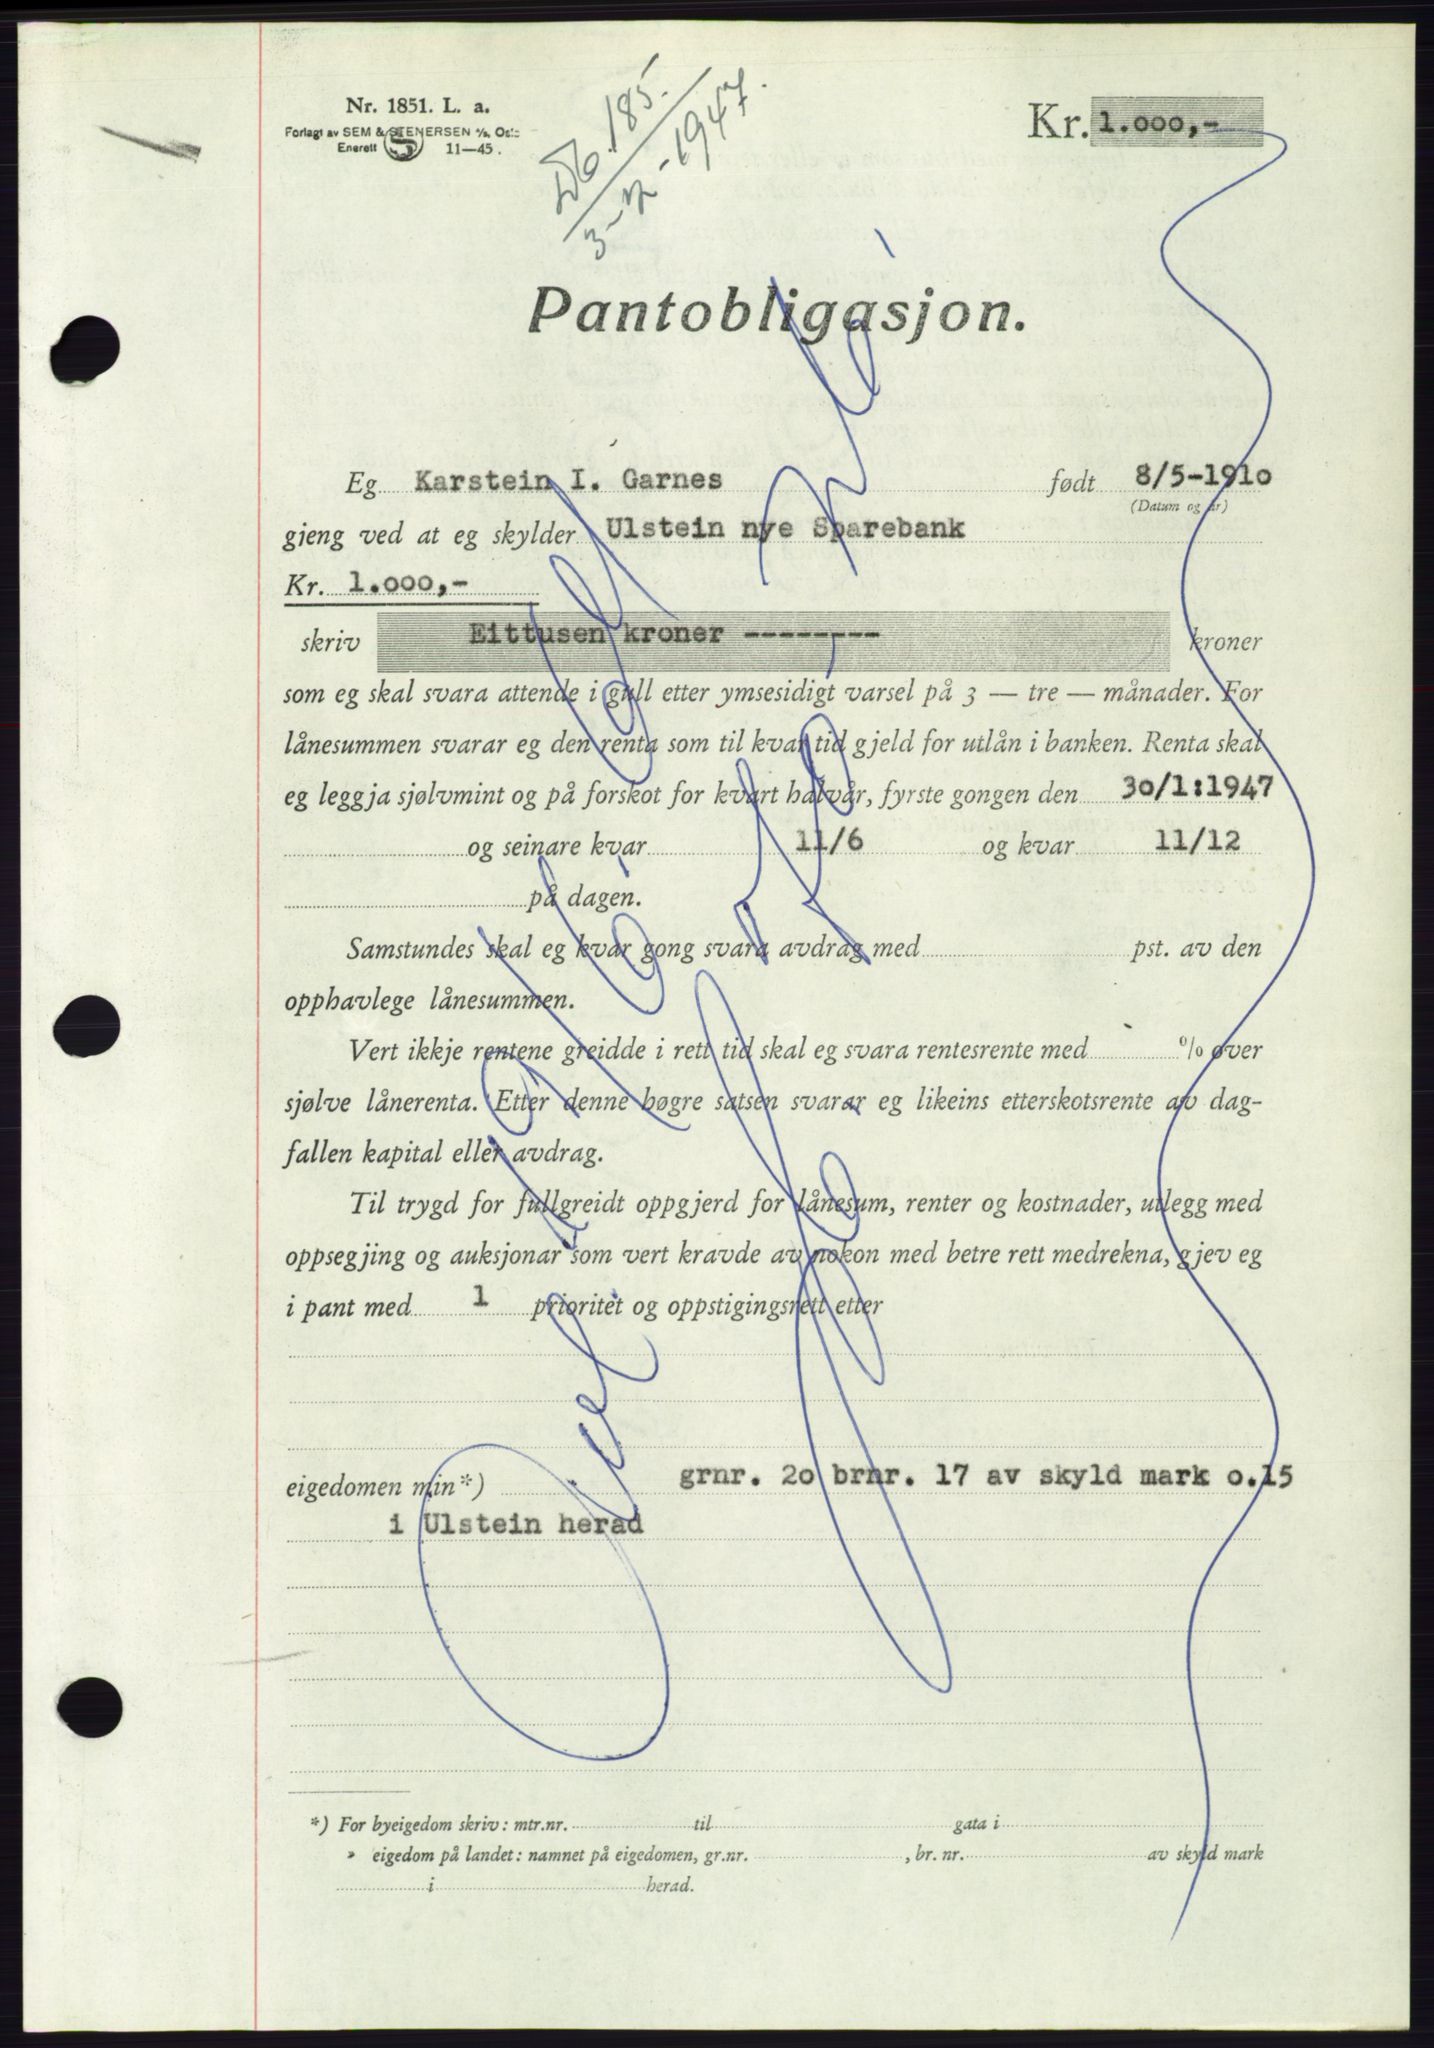 Nr. 1851. L. a.
Forlagt av SEM & STENERSEN A/S, Oslo
Enerett S 11—45.
Kr. 1.000,-
Db. 185.
3-2-1947.
Pantobligasjon.
Eg Karstein I. Garnes født 8/5-1910
(Datum og år)
gjeng ved at eg skylder Ulstein nye Sparebank
Kr. 1.000,-
skriv Eittusen kroner -------- kroner
som eg skal svara attende i gull etter ymsesidigt varsel på 3 — tre — månader. For
lånesummen svarar eg den renta som til kvar tid gjeld for utlån i banken. Renta skal
eg leggja sjølvmint og på forskot for kvart halvår, fyrste gongen den 30/1:1947
og seinare kvar 11/6 og kvar 11/12
på dagen.
Samstundes skal eg kvar gong svara avdrag med pst. av den
opphavlege lånesummen.
Vert ikkje rentene greidde i rett tid skal eg svara rentesrente med % over
sjølve lånerenta. Etter denne høgre satsen svarar eg likeins etterskotsrente av dag-
fallen kapital eller avdrag.
Til trygd for fullgreidt oppgjerd for lånesum, renter og kostnader, utlegg med
oppsegjing og auksjonar som vert kravde av nokon med betre rett medrekna, gjev eg
i pant med 1 prioritet og oppstigingsrett etter
eigedomen min*) grnr. 20 brnr. 17 av skyld mark 0.15
i Ulstein herad
*) For byeigedom skriv: mtr.nr. til gata i
» eigedom på landet: namnet på eigedomen, gr.nr. , br. nr. av skyld mark
i herad.